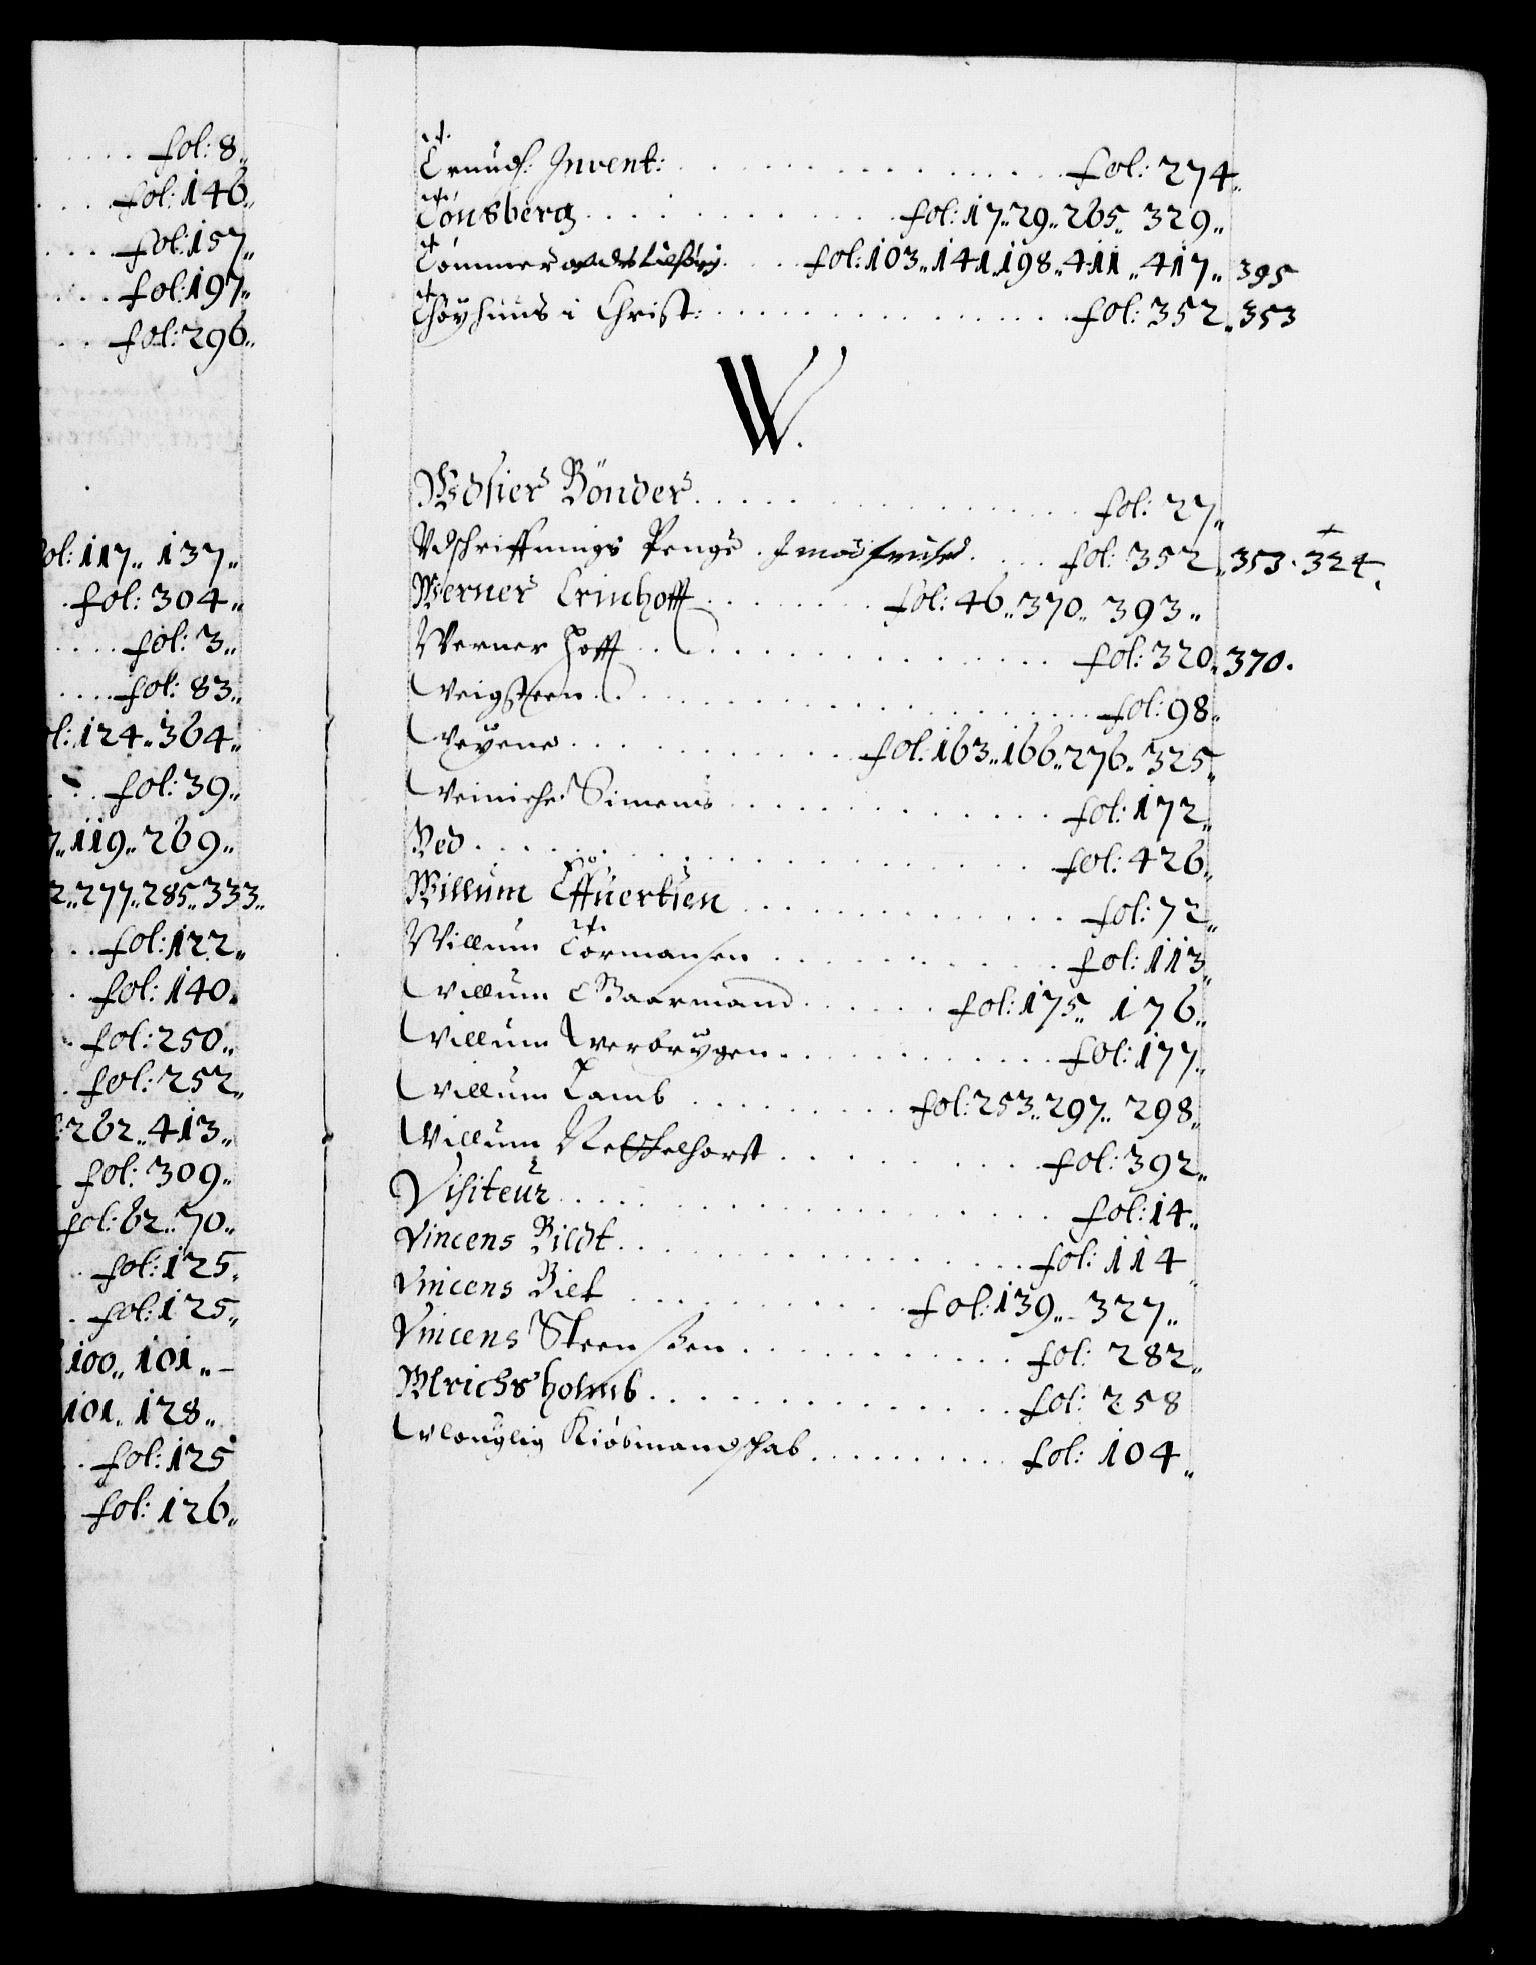 fol: 8„
fol: 146„
fol: 157„
fol: 197„
fol: 296„
ol: 117„ 137„
fol: 304„
fol: 3„
fol: 83„
l: 124„ 364„
fol: 39„
7„ 119„ 269„
2„ 277„ 285„ 333„
fol: 122„
fol: 140„
fol: 250„
fol: 252„
262„ 413„
fol: 309„
fol: 62„ 70„
fol: 125„
fol: 125„
100„ 101„
101„ 128„
fol: 125
fol: 126„
Invent: fol: 274„
Tönsberg fol: 17„ 29„ 265„ 329„
fol: 103„ 141„ 198„ 411„ 417„ 395
Thöyhuus i Christ: fol: 352„ 353
W.
Bönder fol: 27„
Vdschriffnings Penge fol: 352„ 353. 324.
Werner Crinhoff fol: 46„ 370„ 393„
Werner Hoff fol: 320„ 370.
Veigsteen fol: 98„
Veyene fol: 163„ 166„ 276„ 325„
Veiniche Simens fol: 172„
Ved fol: 426„
Willum Effuertsen fol: 72„
Willum Tormansen fol: 113„
Villum Baarmand fol: 175„ 176„
Villum Verbrygen fol: 177„
Villum Lamb fol: 253„ 297„ 298„
Villum Reckelhorst fol: 392„
Visiteur fol: 14„
Vincens Bildt fol: 114
Vincens Bilt fol: 139„ 327„
Vincens Steenssen fol: 282„
Wlrichsholmb fol: 258
Vlouglig Kiöbmandschab fol: 104„